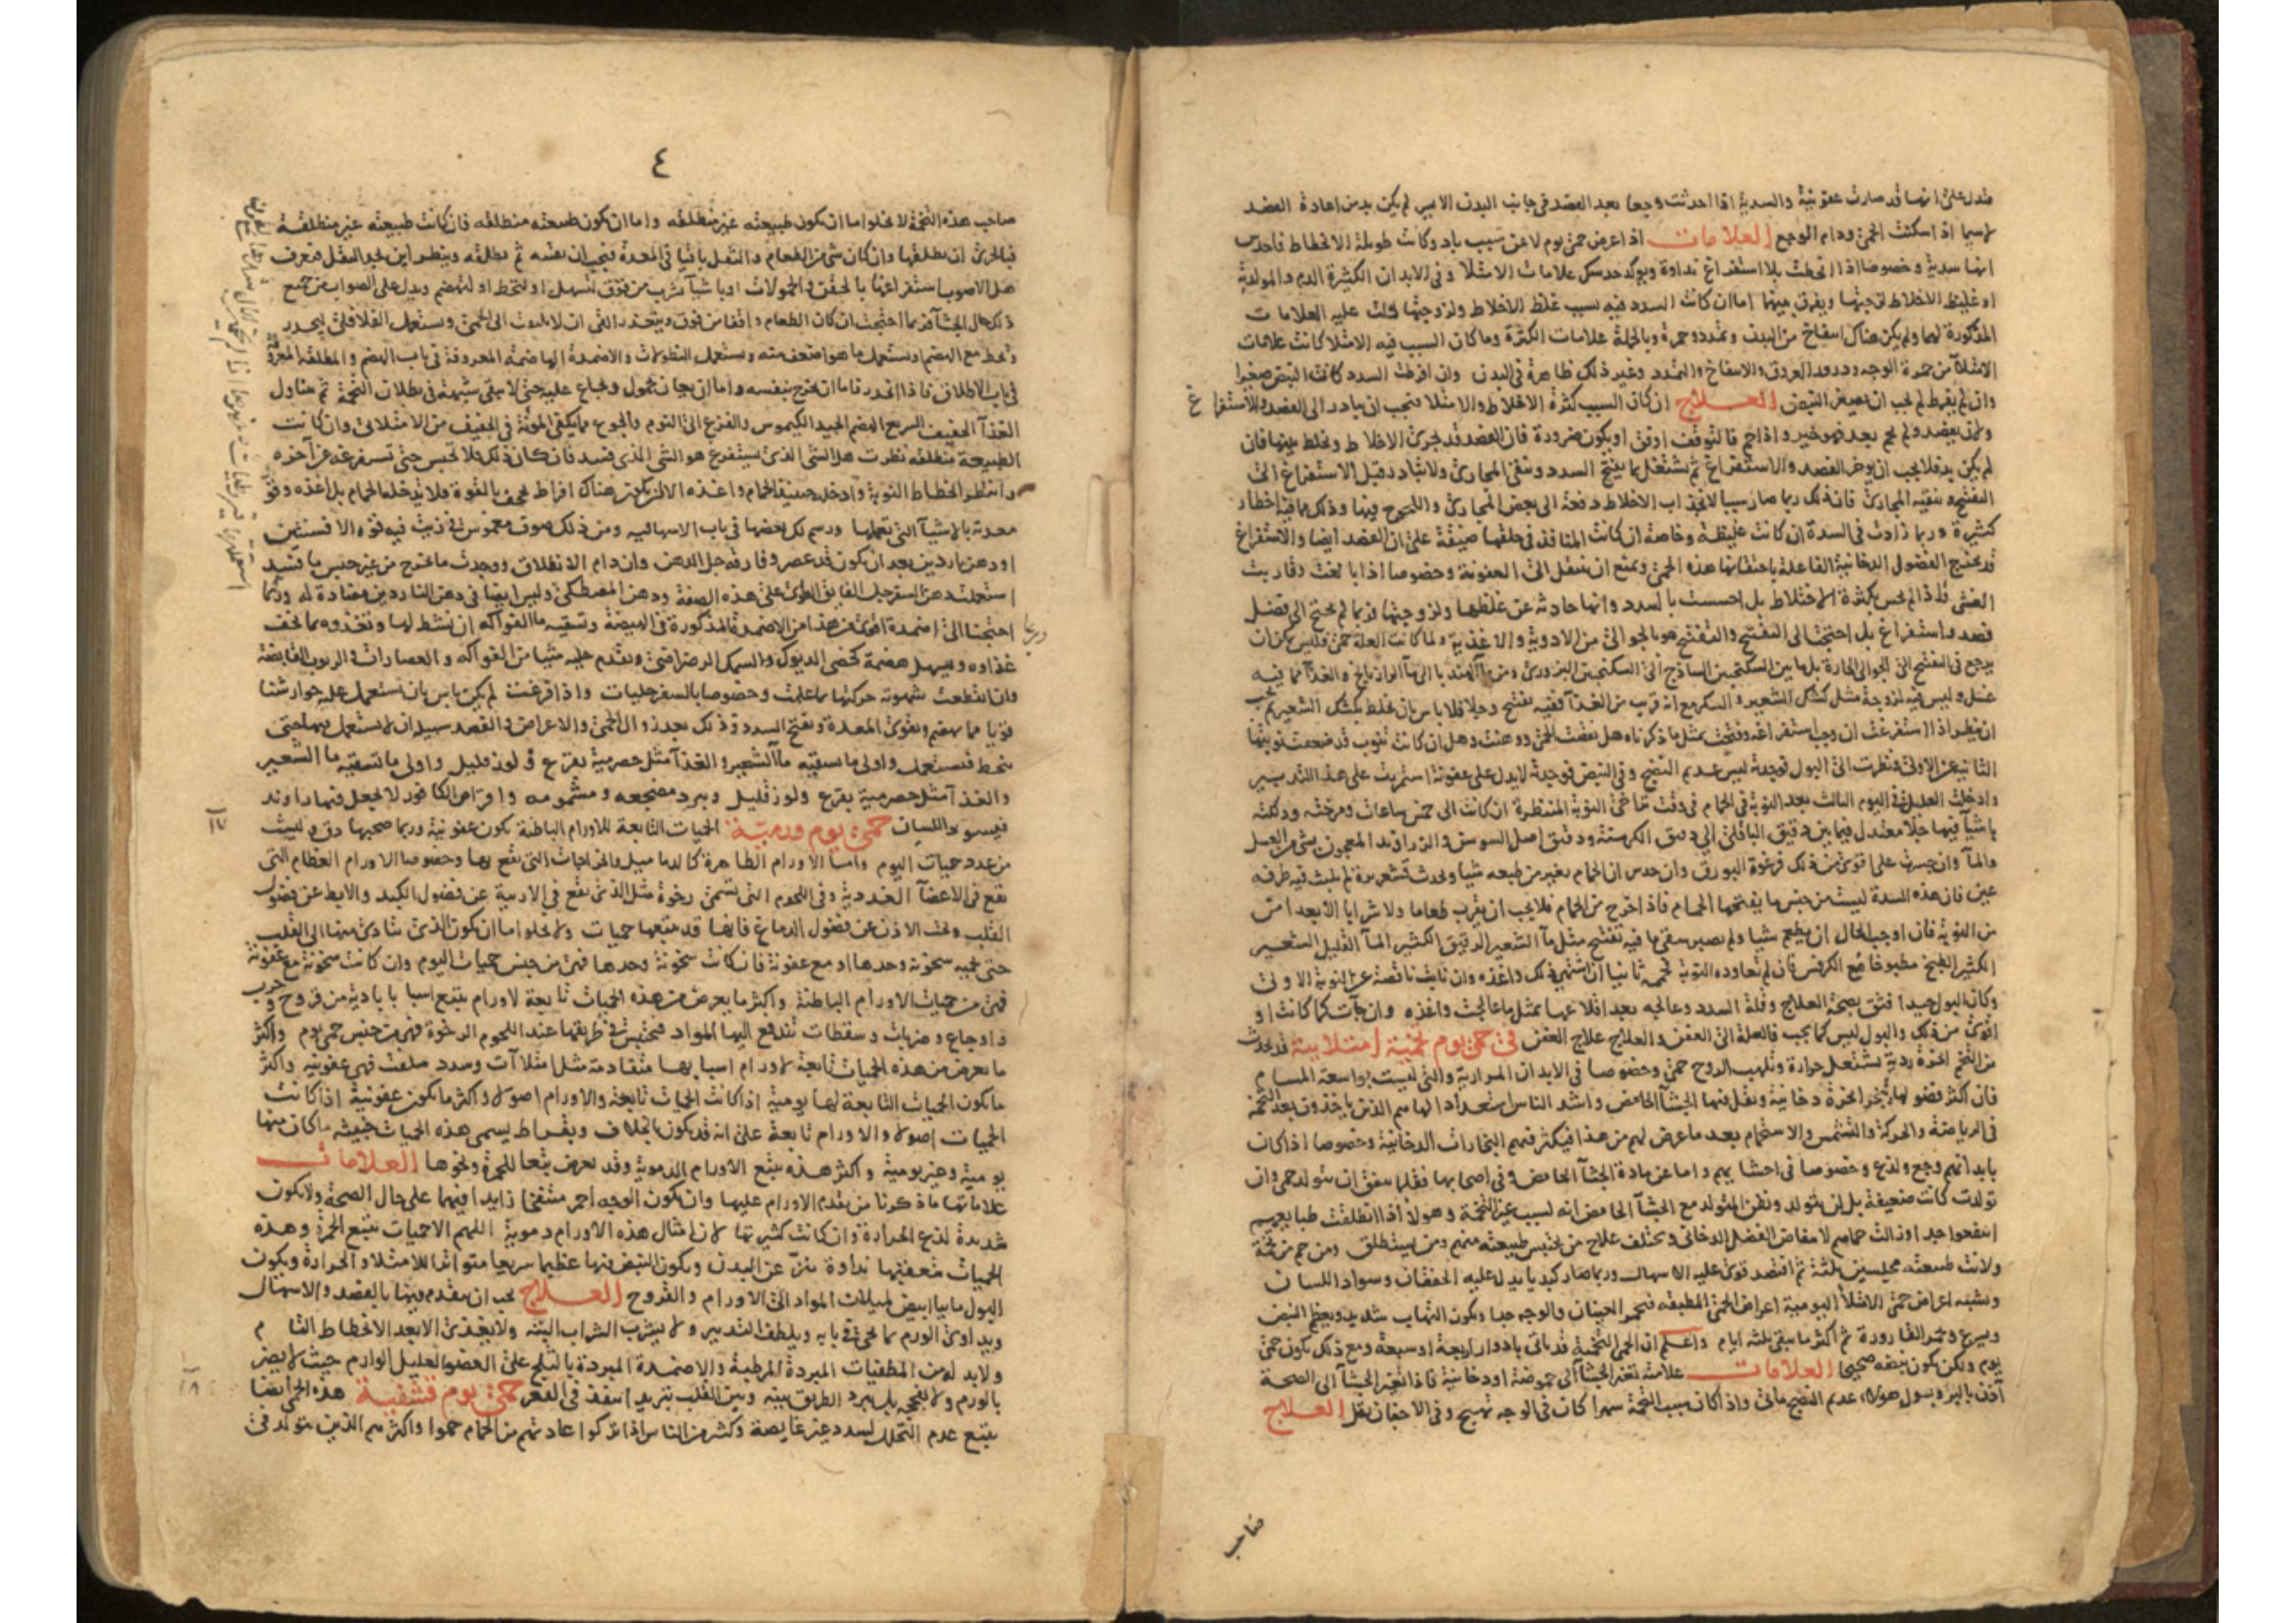 فتدل على انها قد صارت عفونية والسدية اذا احدثت وجعا بعد الفصد في جانب البدن الايسر لم يكن بد من اعادة الفصد
لاسيما اذا سكنت الحمى ودام الوجع العلامات اذا عرض حمى يوم لا عن سبب باد وكانت طويلة الانحطاط فاحدس
انها سدية وخصوصا اذا انحطت بلا استفراغ نداوة ويوكد حدسك علامات الامتلا وفي الابدان الكثيرة الدم والمولدية
او غليظ الاخلاط لزجتها ويفرق بينهما اما ان كانت السدد فيه بسبب غلظ الاخلاط ولزوجتها دلت عليه العلامات
المذكورة لهما ولم يكن هناك انتفاخ من البدن وتمدد وحمرة وبالجملة علامات الكثرة وما كان السبب فيه الامتلا كانت علامات
الامتلآ من حمرة الوجه ودرور العروق والانتفاخ والتمدد وغير ذلك ظاهرة في البدن وان افرطت السدد كانت النبض صغيرا
وان لم يفرط لم يجب ان يصغر النبض العلاج ان كان السبب كثرة الاخلاط والامتلا فيجب ان يبادر الى الفصد وللاستفراغ
لم يكن بد فلا يجب ان يوخر الفصد والاستفراغ ثم تشتغل بما يفتح السدد وينقي المجاري ولا تبادر قبل الاستفراغ الى
التفتيح وتنقيه المجاري فان ذلك ربما صار سببا لانجذاب الاخلاط دفعة الى بعض المجاري واللحوج فيها وذلك مما فيه اخطار
كثيرة وربما زادت في السدة ان كانت غليظة وخاصة ان كانت المنافذ في خلقها ضيقة على ان الفصد ايضا والاستفراغ
قد يخرج الفضول الدخانية الفاعلة باحتقانها هذه الحمى ويمنع ان ينتقل الى العفونة وخصوصا اذا بالغت وقاربت
الغشي فاذا لم يحس بكثرة الاختلاط بل احسست بالسدد وانها حادثة عن غلظها ولزوجتها فربما لم يحتج الى فضل
فصد واستفراغ بل احتجت الى التفتيح والتفتيح هو بالجوالي من الادوية والاغذية ولما كانت العلة حمى فليس يمكن ان
يرجع في التفتيح الى الجوالي الحارة بل ما بين السكنجبين الساذج الى السكنجبين البزوري ومن مآ الهندبا الى مآ الرازيانج والغذا مما فيه
غسل وليس فيه لزوجة مثل كشك الشعير والسكر مع انه قريب من الغذا ففيه تفتيح وجلا فلا باس بان يخلط بكشك الشعير ثم يجب
ان ينظر اذا استفرغت ان وجب استفراغه وفتحت بمثل ما ذكرناه هل نقصت الحمى ووهنت وهل ان كانت تنوب قد ضعفت نوبتها
الثانية عن الاولى ونظرت الى البول فوجدته ليس عديم النضج وفي النبض فوجدته لا يدل على عفونة استمريت على هذا التدبير
وادخلت العليل في اليوم الثالث بعد النوبة في الحمام في وقت تراخي النوبة المنتظرة ان كانت الى خمس ساعات ومرخته ودلكته
باشيآ فيها جلا معتدل فيما بين دقيق الباقلي الى دقيق الكرسنة ودقيق اصل السوسن والزراوند المعجون بشي من العسل
والمآ وان جسرت على اقوى من ذلك فرغوة البورق وان حدس ان الحمام يغير من طبعه شيا ويحدث قشعريرة لم يلبث فيه طرفه
عين فان هذه السدة ليست من جنس ما يفتحها الحمام فاذا خرج من الحمام فلا يجب ان يقرب طعاما ولا شرابا الا بعد امن
من النوبة فان اوجب الحال ان يطعم شيا ولم يصبر سقي ما فيه تفتيح مثل مآ الشعير الرقيق الكثير المآ القليل الشعير
الكثير الطبخ مطبوخا مع الكرفس فان لم تعاوده النوبة حممه ثانيا ان اشتهى ذلك واغذه وان نابت ناقصة عن النوبة الاولى
وكان البول جيدا فثق بصحة العلاج وقلة السدد وعالجه بعد اقلاعها بمثل ما عالجت واغذه وان جآت كما كانت او
اقوى من ذلك والبول ليس كما يجب فالعلة الى العفن والعلاج علاج العفن في حمى يوم تخمية امتلائية قد تحدث
من التخم ابخرة ردية تشتعل حرارة وتلهب الروح حمى وخصوصا في الابدان المرارية والتي ليست بواسعة المسام
فان اكثر فضولها بخر ابخرة دخانية ويقل فيها الجشآ الحامض واشد الناس استعدادا لها هم الذين ياخذون بعد التخمة
في الرياضة والحركة والتشمس والاستحمام بعد ما عرض لهم من هذا فيكثر فيهم البخارات الدخانية وخصوصا اذا كان
بابدانهم وجع ولذع وخصوصا في احشا يهم واما عن مادة الجشآ الحامض وفي اصحابها فقلما يتفق ان يتولد حمى وان
تولدت كانت ضعيفة بل لن يتولد ويظن المتولد مع الجشآ الحامض انه لسبب غير التخمة وهولآ اذا انطلقت طبايعهم
انتفعوا جدا وزالت حماهم لانتفاض الفضل الدخاني ويختلف علاج من يحتبس طبيعته منهم ومن يستطلق ومن حم من تخمة
ولانت طبيعته مجلسين ثلثة ثم اقتصد قوي عليه الاسهال وربما صار كبديا يدل عليه الخفقان وسواد اللسان
وتشبه اعراض حمى الامتلآ اليومية اعراض الحمى المطبقه فتحمر العينان والوجه جدا ويكون التهاب شديد ويعظم النبض
ويسرع وتحمر القارورة ثم اكثر ما يبقى ثلثه ايام واعلم ان الحمى التخمية قد تاتي بادوار اربعة او سبعة ومع ذلك يكون حمى
يوم ولكن يكون نبضه صحيحا العلامات علامته تغير الجشآ الى حموضة او دخانية فاذا تغير الجشآ الى الصحة
آذن بالبر وبول هولآء عديم النضج مائي واذا كان سبب التخمة سهرا كان في الوجه تهيج وفي الاجفان ثقل العلاج
صاحب
٤
صاحب هذه التخمة لا يخلوا اما ان يكون طبيعته غير منطلقه واما ان يكون طبيعته منطلقه فان كانت طبيعته غير منطلقة
فبالحري ان يطلقها وان كان شي من الطعام والثفل باقيا في المعدة فيجب ان يقيه ثم يطلقه وينظر اين يجد الثقل فتعرف
هل الاصوب استفراغها بالحقن والحمولات او باشيآ تشرب من فوق لتسهل او لتحط او لتهضم ويدل على الصواب من جميع
ذلك حال الجشآ فربما احتجت ان كان الطعام واقفا من فوق ويتعذر القي ان لا يلتفت الى الحمى ويستعمل الفلافلي ليحدر
وتحط مع الهضم وتستعمل ما هو اضعف منه ويستعمل النطولات والاضمدة الهاضمة المعروفة في باب الهضم والمطلقه المعروفة
في باب الاطلاق فاذا انحدر فاما ان يخرج بنفسه واما ان يعان بحمول ويجاع عليه حتى لا يبقى شبهة في بطلان التخمة ثم يتناول
الغذآ الخفيف السريع الهضم الجيد الكيموس والفزع الى النوم والجوع مما يكفي المونة في الخفيف من الامتلائي وان كانت
الطبيعة منطلقه نظرت هل الشي الذي يستفرغ هو الشي الذي فسد فان كان ذلك فلا تحبس حتى تستفرغه عن آخره
وانتظر انحطاط النوبة وادخله حينئذ الحمام واغذه الا ان يكون هناك افراط مجحف بالقوة فلا يدخله الحمام بل اغذه وقو
معدته بالاشيآ التي تعملها ورسم لك بعضها في باب الاسهاليه ومن ذلك صوف مغموس في زيت فيه قوة الافسنتين
او دهن ناردين بعد ان يكون قد عصر وفارقه جل الدهن وان دام الانطلاق ووجدت ما يخرج من غير جنس ما فسد
استعملت دهن السفرجل الفايق القوي على هذه الصفة ودهن المصطكى وليس ايضا في دهن الناردين مضادة له وربما
احتجنا الى اضمدة اقوى من هذا من الاضمدة المذكورة في الهيضة وتسقيه مآ الفواكه ان نشط لها وتغذوه بما يخف
غذاوه ويسهل هضمه كخصى الديوك والسمك الرضراضي ويقدم عليه شيا من الفواكه والعصارات والربوب القابضة
وان انقطعت شهوته حركتها بما علمت وخصوصا بالسفرجليات واذا افرغت لم يكن باس بان تستعمل عليه جوارشنا
قويا مما يهضم ويقوي المعدة ويفتح السدد وذلك بعد زوال الحمى والاعراض والفصد سبيله ان لا يستعمل فيها حتى
ينحط فيستعمل واولى ما يسقيه مآ الشعير والغذآ مثل حصرمية بقرع ولوز قليل واولى ما تسقيه مآ الشعير
والغذآ مثل حصرمية بقرع ولوز قليل ويبرد مضجعه ومشمومه واقراص الكافور لا يجعل فيها راوند
فيسود اللسان حمى يوم ورمية الحميات التابعة للاورام الباطنة تكون عفونية وربما صحبها دق وليست
من عدد حميات اليوم واما الاورام الظاهرة كالدماميل والخراجات التي تقع بها وخصوصا الاورام العظام التي
تقع في الاعضآ الغددية وفي اللحوم التي تسمى رخوة مثل الذي يقع في الاربية عن فضول الكبد والابط عن فضول
القلب وتحت الاذن عن فضول الدماغ فانها قد يتبعها حميات ولا يخلوا اما ان يكون الذي يتادى منها الى القلب
حتى تحميه سخونة وحدها او مع عفونة فان كانت سخونة وحدها فهي من جنس حميات اليوم وان كانت سخونة مع عفونة
فهي من حميات الاورام الباطنة واكثر ما يعرض من هذه الحميات تابعة لاورام يتبع اسبابا بادية من قروح وجرب
واوجاع وضربات وسقطات تندفع اليها المواد فتحتبس في طريقها عند اللحوم الرخوة فهي من جنس حمى يوم واكثر
ما تعرض من هذه الحميات تابعة لاورام اسبابها متقادمة مثل امتلاآت وسدد سلفت فهي عفونيه واكثر
ما يكون الحميات التابعة لها يومية اذا كانت الحميات تابعة والاورام اصولا واكثر ما يكون عفونية اذا كانت
الحميات اصولا والاورام تابعة على انه قد يكون بالخلاف وبقراط يسمى هذه الحميات خبيثه ما كان منها
يومية وغير يومية واكثر هذه يتبع الاورام الدموية وقد تعرض تبعا للحمرة ونحوها العلامات
علاماتها ما ذكرنا من تقدم الاورام عليها وان يكون الوجه احمر منتفخا زايدا فيهما على حال الصحة ولا يكون
شديدة لذع الحرارة وان كانت كثيرتها لان امثال هذه الاورام دموية اللهم الا حميات يتبع الحمرة وهذه
الحميات يتعقبها نداوة تنز عن البدن ويكون النبض فيها عظيما سريعا متواترا للامتلا والحرارة ويكون
البول مايا ابيض لميلان المواد الى الاورام والقروح العلاج يجب ان يتقدم فيها بالفصد والاسهال
ويداوى الورم بما يجي في بابه ويلطف التدبير ولا يشرب الشراب البته ولا يغتذي الا بعد الانحطاط التام
ولا بد له من المطفيات المبردة المرطبة والاضمدة المبردة بالثلج على العضو العليل الوارم حيث لا يضر
بالورم ولا يفججه بل يبرد الطريق بينه وبين القلب تبريدا ينفذ في القعر حمى يوم قشفية هذه الحمى ايضا
يتبع عدم التحلل لسدد غير غايصة وكثير من الناس اذا تركوا عادتهم من الحمام حموا واكثرهم الذين يتولد في